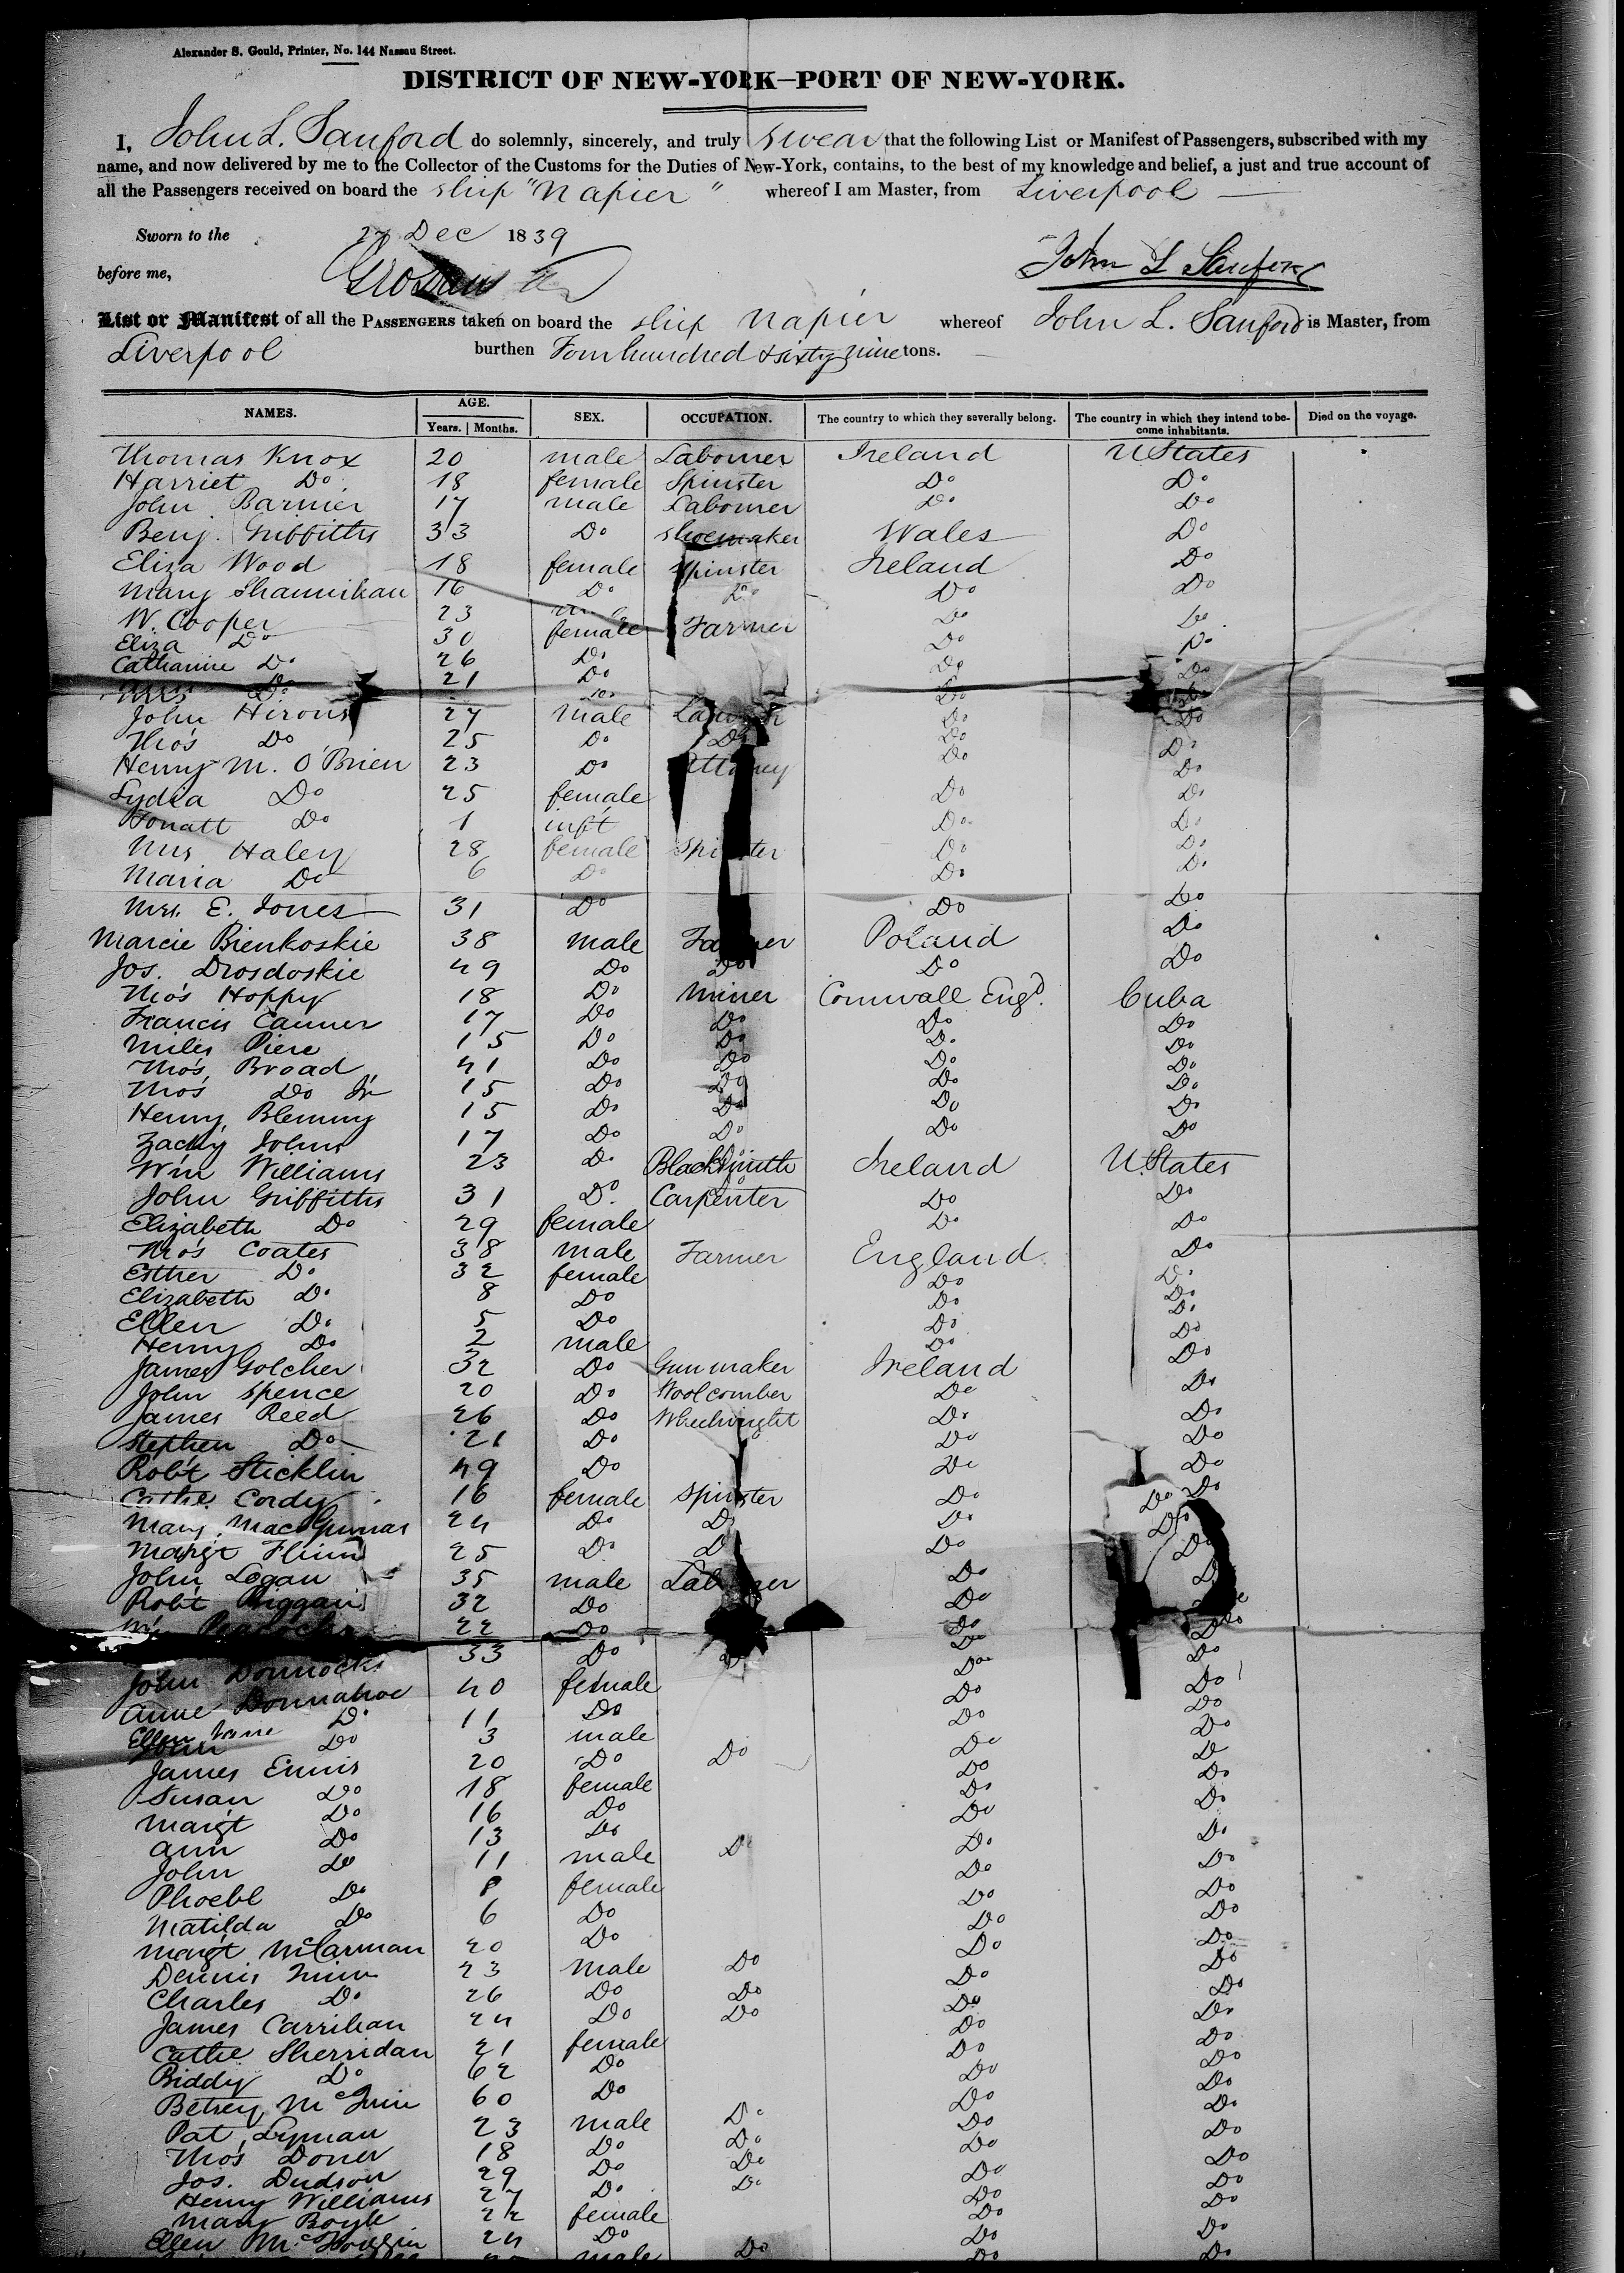 Alexander S. Gould, Printer, No. 144 Nassau Street.
DISTRICT OF NEW-YORK—PORT OF NEW-YORK.
I, John L. Sanford do solemnly, sincerely, and truly swear that the following List or Manifest of Passengers, subscribed with my
name, and now delivered by me to the Collector of the Customs for the Duties of New-York, contains, to the best of my knowledge and belief, a just and true account of
all the Passengers received on board the ship "Napier" whereof I am Master, from Liverpool
Sworn to the 27 Dec 1839
before me, John L Sanford
List or Manifest of all the PASSENGERS taken on board the ship Napier whereof John L. Sanford is Master, from
Liverpool burthen Four hundred & sixty nine tons.
NAMES. AGE. Years. Months. SEX. OCCUPATION. The country to which they severally belong. The country in which they intend to become inhabitants. Died on the voyage.
Thomas Knox 20 male Labourer Ireland U States
Harriet Do 18 female Spinster Do Do
John Barnier 17 male Labourer Do Do
Benj. Griffiths 33 Do shoemaker Wales Do
Eliza Wood 18 female Spinster Ireland Do
Mary 16 Do Do Do Do
W. Cooper 23 male Farmer Do Do
Eliza Do 30 female Do Do
Catharine Do 26 Do Do Do
Do 21 Do Do Do
John Hirons 27 male Do Do
Thos Do 25 Do Do Do Do
Henry M. O'Brien 23 Do Attorney Do Do
Lydia Do 25 female Do Do
Do 1 inft Do Do
Mrs Haley 28 female Spinster Do Do
Maria Do 6 Do Do Do
Mrs. E. Jones 31 Do Do Do
Marcie Bienkoskie 38 male Farmer Poland Do
Jos. Drosdoskie 49 Do Do Do Do
Thos Hoppy 18 Do Miner Cornwall Engd. Cuba
Francis Canner 17 Do Do Do Do
Miles Piere 15 Do Do Do Do
Thos Broad 41 Do Do Do Do
Thos Do Jr 15 Do Do Do Do
Henry Blemmy 15 Do Do Do Do
Zachy Johns 17 Do Do Do Do
Wm Williams 23 Do Blacksmith Ireland U. States
John Griffiths 31 Do. Carpenter Do Do
Elizabeth Do 29 female Do Do
Thos Coates 38 male Farmer England Do
Esther Do 32 female Do Do
Elizabeth Do 8 Do Do Do
Ellen Do 5 Do Do Do
Henry Do 2 male Do Do
James Golcher 32 Do Gun maker Ireland Do
John Spence 20 Do Wool comber Do Do
James Reed 26 Do Wheelwright Do Do
Stephen Do 21 Do Do Do
Robt Sticklin 49 Do Do Do
Cathe Cordy 16 female Spinster Do Do
Mary 24 Do Do Do Do
Margt Flinn 25 Do Do Do Do
John Logan 35 male Labourer Do Do
Robt Biggan 32 Do Do Do
Wm 22 Do Do Do
John Donnocks 33 Do Do Do Do
Anne Donnahoe 40 female Do Do
Ellen Jane Do 11 Do Do Do
John Do 3 male Do Do
James Ennis 20 Do Do Do Do
Susan Do 18 female Do Do
Margt Do 16 Do Do Do
Ann Do 13 Do Do Do
John Do 11 male Do Do Do
Phoebe Do 8 female Do Do
Matilda Do 6 Do Do Do
Margt McCarman 20 Do Do Do
Dennis Quinn 23 male Do Do Do
Charles Do 26 Do Do Do Do
James Carrihan 24 Do Do Do Do
Cathe Sherridan 21 female Do Do
Biddy Do 62 Do Do Do
Betsey McQuin 60 Do Do Do
Pat Lyman 23 male Do Do Do
Thos Doner 18 Do Do Do Do
Jos. Dudson 29 Do Do Do Do
Henry Williams 27 Do Do Do Do
Mary Boyle 22 female Do Do
Ellen 24 Do Do Do
male Do Do Do